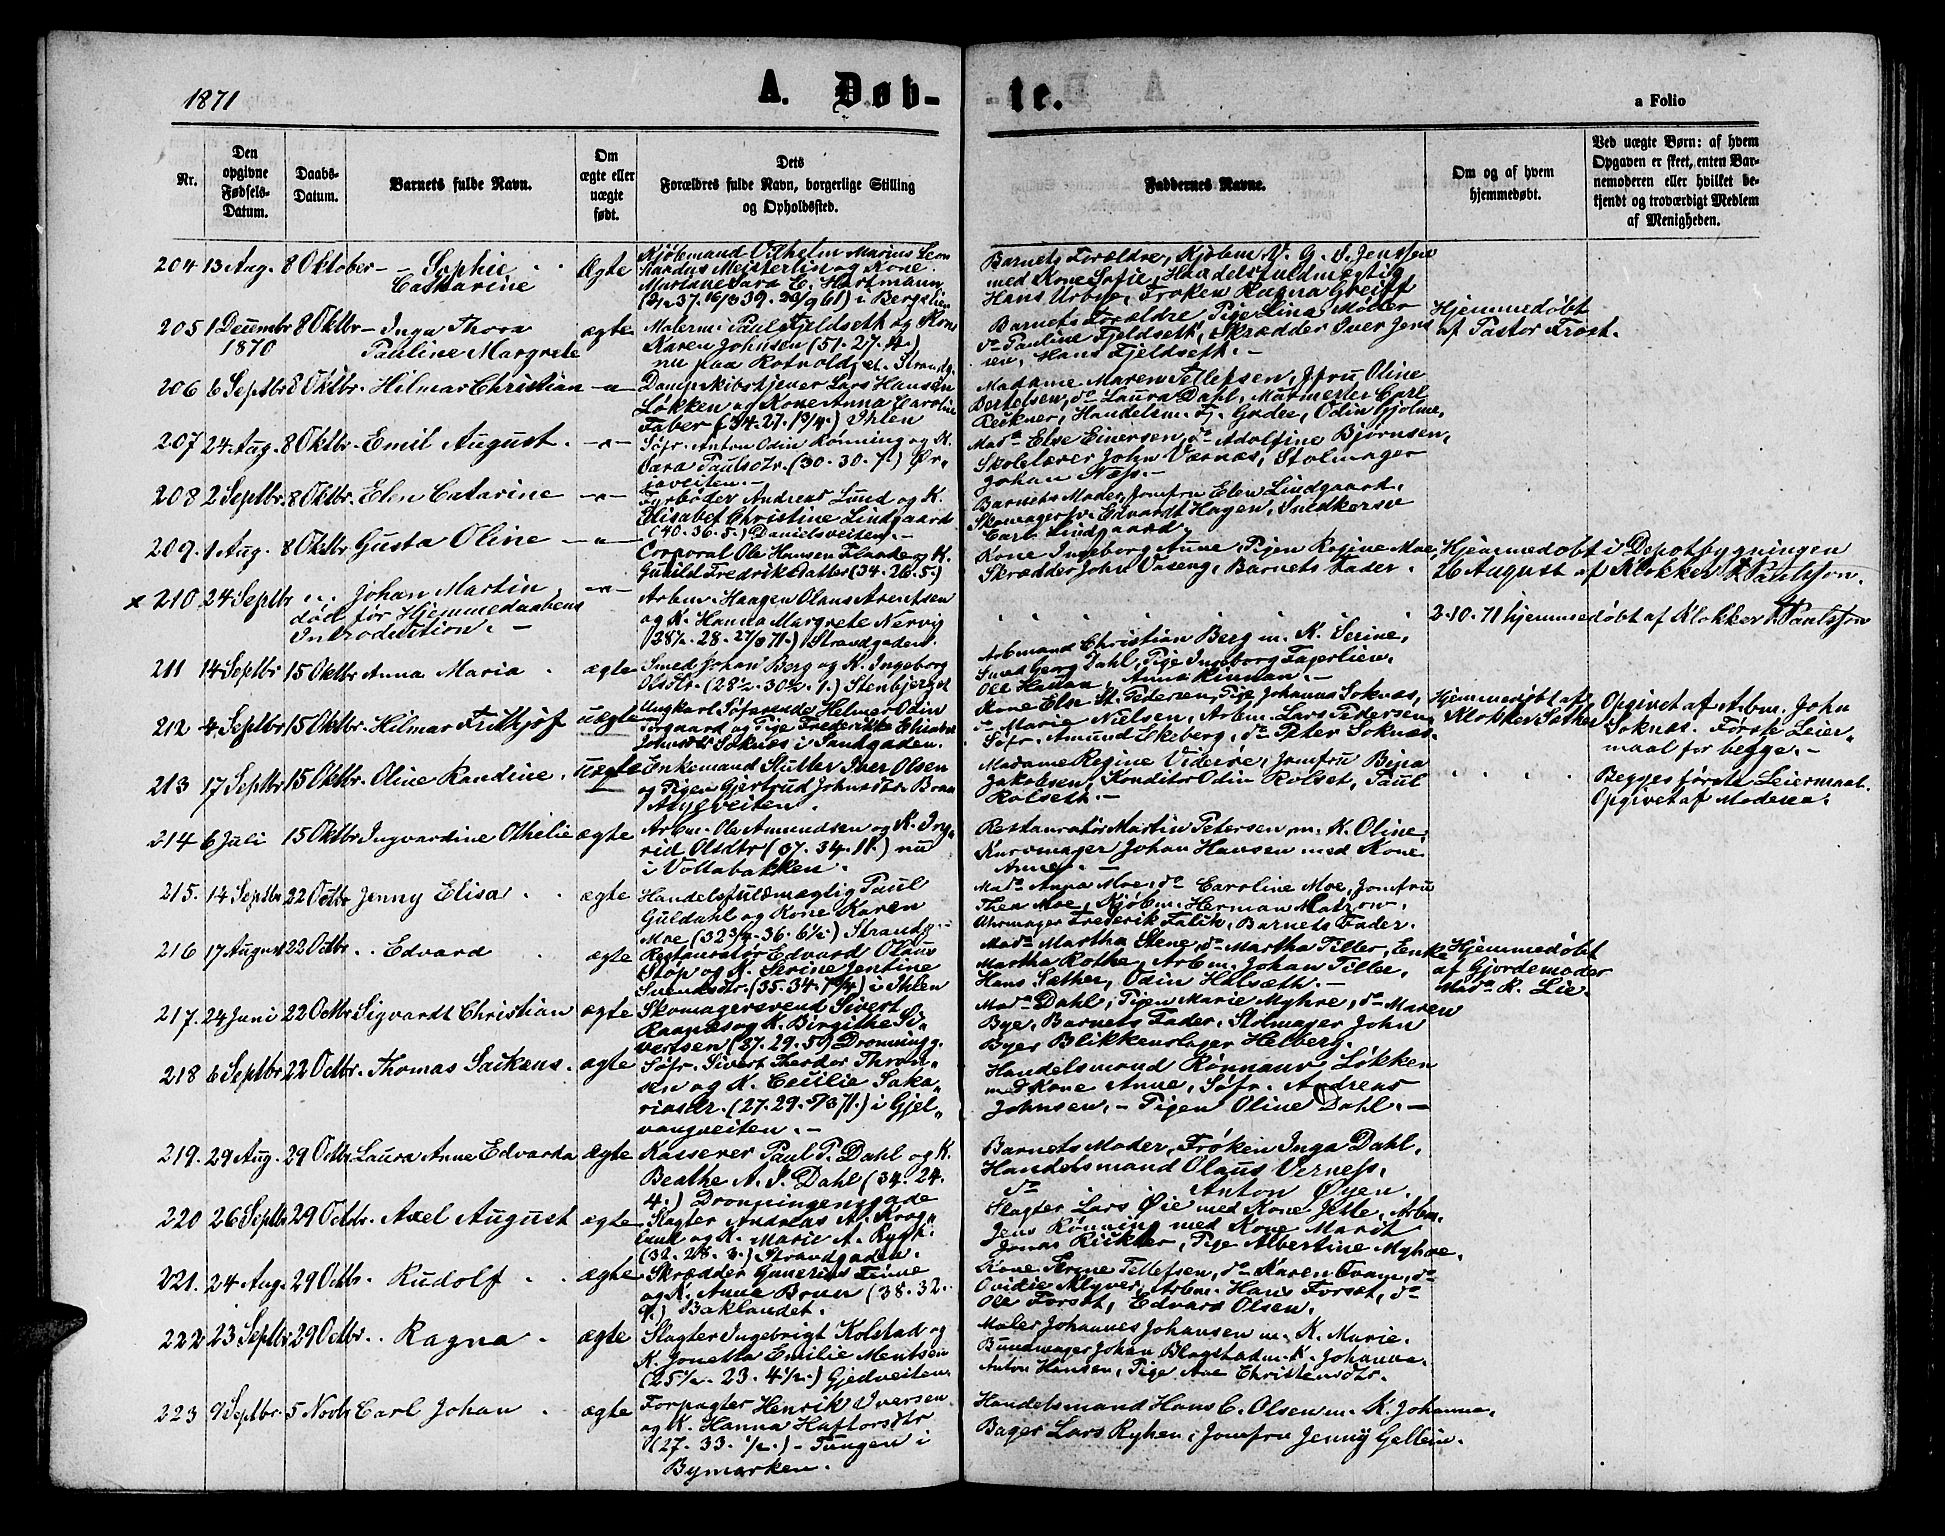 1871
A. Døb-
te.
a Folio
Nr.
Den opgivne Fødsels-Datum.
Daabs-Datum.
Barnets fulde Navn.
Om ægte eller uægte født.
Dets Forældres fulde Navn, borgerlige Stilling og Opholdssted.
Faddernes Navne.
Om og af hvem hjemmedøbt.
Ved uægte Børn: af hvem Opgaven er skeet, enten Barnemoderen eller hvilket bekjendt og troværdigt Medlem af Menigheden.
204 13 Aug. 8 Oktober - - Sophie Ægte
Catharine
Kjøbmand Vilhelm Marius Leon
hardus Meisterlin og Kone
Hartmann
Barnets Forældre, Kjøbm. V. G. S. Jenssen
med Kone Sofie, Handelsfuldmægtig
Hans Urbye, Frøken Ragna Greiff
205 1 Decembr 8 Oktbr - Inga Thora ægte
1870 Pauline Margrete
Malerm. Paul Fjeldseth og Kone
Karen Johnsen (51. 27. 4)
nu paa Rotvold, Strandg.
Barnets Forældre, Pige Lina Møller
do Pauline Fjeldseth, Skrædder Iver Jens
sen, Hans Fjeldseth. -
Hjemmedøbt
af Pastor Frost.
206 6 Septbr 8 Oktbr. Hilmar Christian -"-
Dampskibstjener Lars Hansen
Løkken og Kone Anna Caroline
Faber (34. 27. 19/4) Ihlen
Madame Maren Tellefsen, Jfru Oline
Bertelsen, do Laura Dahl, Murmester Carl
Reckner, Handelsm. Fj. Gades, Odin Gjølme,
207 24 Aug. 8 Oktbr. Emil August. -"-
Søfr. Anton Odin Rønning og K.
Sara Paulsdtr. (30. 30. 7.) Ør-
javeiten. -
Mad. Else Einersen, do Adolfine Bjørnsen,
Skolelærer John Værnes, Stolmager
Johan Næss. -
208 2 Septbr. 8 Oktbr. Elen Catarine -"-
Fyrbøder Andreas Lund og K.
Elisabet Christine Lindgaard
(40. 36. 5.) Danielsveiten. -
Barnets Moder, Jomfru Elen Lindgaard,
Skomagersv. Edvardt Hagen, Guldkersv
Carl Lindgaard
209. 1 Aug. 8 Oktbr Gusta Oline -"-
Corporal Ole Hansen og K.
Gunild Fredriksdatter (34. 26. 5.)
Kone Ingeborg Aune, Pigen Regine Moe,
Skrædder John Vaseng, Barnets Fader.
Hjemmedøbt i Depotbygningen
26 August af Klokker Paulsson.
x 210 24 Septbr ". Johan Martin -"-
død før Hjemmedaabens
Introduction. -
Arbm. Haagen Olaus Arentsen
og K. Hanna Margrete Nervig
(28½. 28. 27/8 71.) Strandgaden.
2-10. 71 hjemmedøbt af Klokker Paulsson
211 14 Septbr 15 Oktbr Anna Maria. ægte
Smed Johan Berg og K. Ingeborg
Olsdtr. (28½. 30½. 1.) Stenbjerget
Arbmand Christian Berg m. K. Serine,
Smed Georg Dahl, Pige Ingeborg Fagerlien,
Ole Hallan, Anna Rinnan. -
212 4 Septbr 15 Oktbr. Hilmar Frithjof uægte
Ungkarl Søfarende Helmer Odin
Torgaard og Pige Frederikke Elisabet
Johnsdtr Soknæs i Sandgaden.
Kone Else M. Pedersen, Pige Johanna Soknæs,
do Marie Nielsen, Arbm. Lars Pedersen
Søfr. Amund Ekeberg, do Peter Soknæs.
Hjemmedøbt af
Klokker Sæther
Opgivet af Arbm. John
Soknæs. Første Leier-
maal for begge. -
213 17 Septbr 15 Oktbr. Oline Randine. uægte
Enkemand Slutter Iver Olsen
og Pigen Gjertrud Johnsdtr. Braa
Madame Regine Videire, Jomfru Bina
Jakobsen, Konditor Odin Rolset, Paul
Rolseth. -
Begges første Leiermaal.
Opgivet af Moderen.
214 6 Juli 15 Oktbr Ingvardine Othelie ægte
Arbm. Ole Amundsen og K. Ing-
rid Olsdtr (37. 34. 11.) nu
i Vollabakken.
Restauratør Martin Petersen m. K. Oline
Kurvmager Johan Hansen med Kone
Anne. -
215. 14 Septbr 22 Octbr Jenny Elisa. ægte
Handelsfuldmægtig Paul
Guldahl og Kone Karen
Moe (32¾. 36. 6½.) Strandg. -
Mad. Anna Moe, do Caroline Moe, Jomfru
Thea Moe, Kjøbm. Herman Matzow,
Uhrmager Frederik Falck, Barnets Fader.
216 17 August 22 Octbr.. Edvard ægte
Restauratør Edvard Olaus
Støp og K. Serine Jentine
Svendsdtr. (35. 34. 7¾) i Ihlen
Mad. Martha Stene, do Martha Tiller, Enke
Martha Rothe, Arbm. Johan Tiller,
Hans Sæther, Odin Halseth. -
Hjemmedøbt
af Gjordemoder
Mad. K. Lie.
217. 24 Juni 22 Octbr Sigvardt Christian ægte
Skomagersvend Sivert
Raanæs og K. Birgithe Si-
vertsen (37. 29. 59) Dronningg.
Mad. Dahl, Pigen Marie Myhre, do Maren
Bye, Barnets Fader, Stolmager John
Bye, Blikkenslager Helberg.
218 6 Septbr 22 Octbr. Thomas Sackens. ægte
Søfr. Sivert Theodor Thron-
sen og K. Cecilie Saka-
riasdr. (27. 29. 5/3 71.) i Gjel-
vangveiten. -
Handelsmand Rønnaus Løkken
med Kone Anne, Søfr. Andreas
Johnsen, - Pigen Oline Dahl. -
219. 29 Aug. 29 Octbr Laura Anne Edvarda ægte
Kasserer Paul P. Dahl og K.
Beathe A. S. Dahl (34. 24.
4.) Dronningensgade
Barnets Moder, Frøken Inga Dahl,
Handelsmand Olaus Verness,
do Anton Øyen.
220 26 Septbr 29 Octbr. Axel August ægte
Slagter Andreas A. Krog-
lund og K. Marie A. Rygh.
(32. 28. 3.) Strandgaden.
Slagter Lars Øie med Kone Jette, Arbm.
Jens Rønning med Kone Marit
Jonas Richter, Pige Albertine Myhre.
221. 24 Aug. 29 Octbr. Rudolf. ægte
Skrædder Gunerius Finne
og K. Anna Brun (38. 32.
9.) Baklandet.
Kone Serine Tellefsen, do Karen Tvam, do
Ovidie Klyver, Arbm. Hans Forset, do
Ole Forset, Edvard Olsen.
222 23 Septbr 29 Octbr.. Ragna. ægte
Slagter Ingebrigt Kolstad og
K. Jonetta Emilie Mentsen
(25½. 23. 4½.) Gjedveiten.
Maler Johannes Johansen m. K. Marie.
Bundmager Johan Blogstad m. K. Johanna.
Anton Hansen, Pige Ane Christensdtr.
223 9 Septbr. 5 Novbr Carl Johan. ægte
Forpagter Henrik Iversen
og K. Hanna Haftorsdtr
(27. 33. ½.) - Tungen i
Bymarken.
Handelsmand Hans C. Olsen m. K. Johanna.
Bager Lars Ryhen, Jomfru Jenny Gellein.